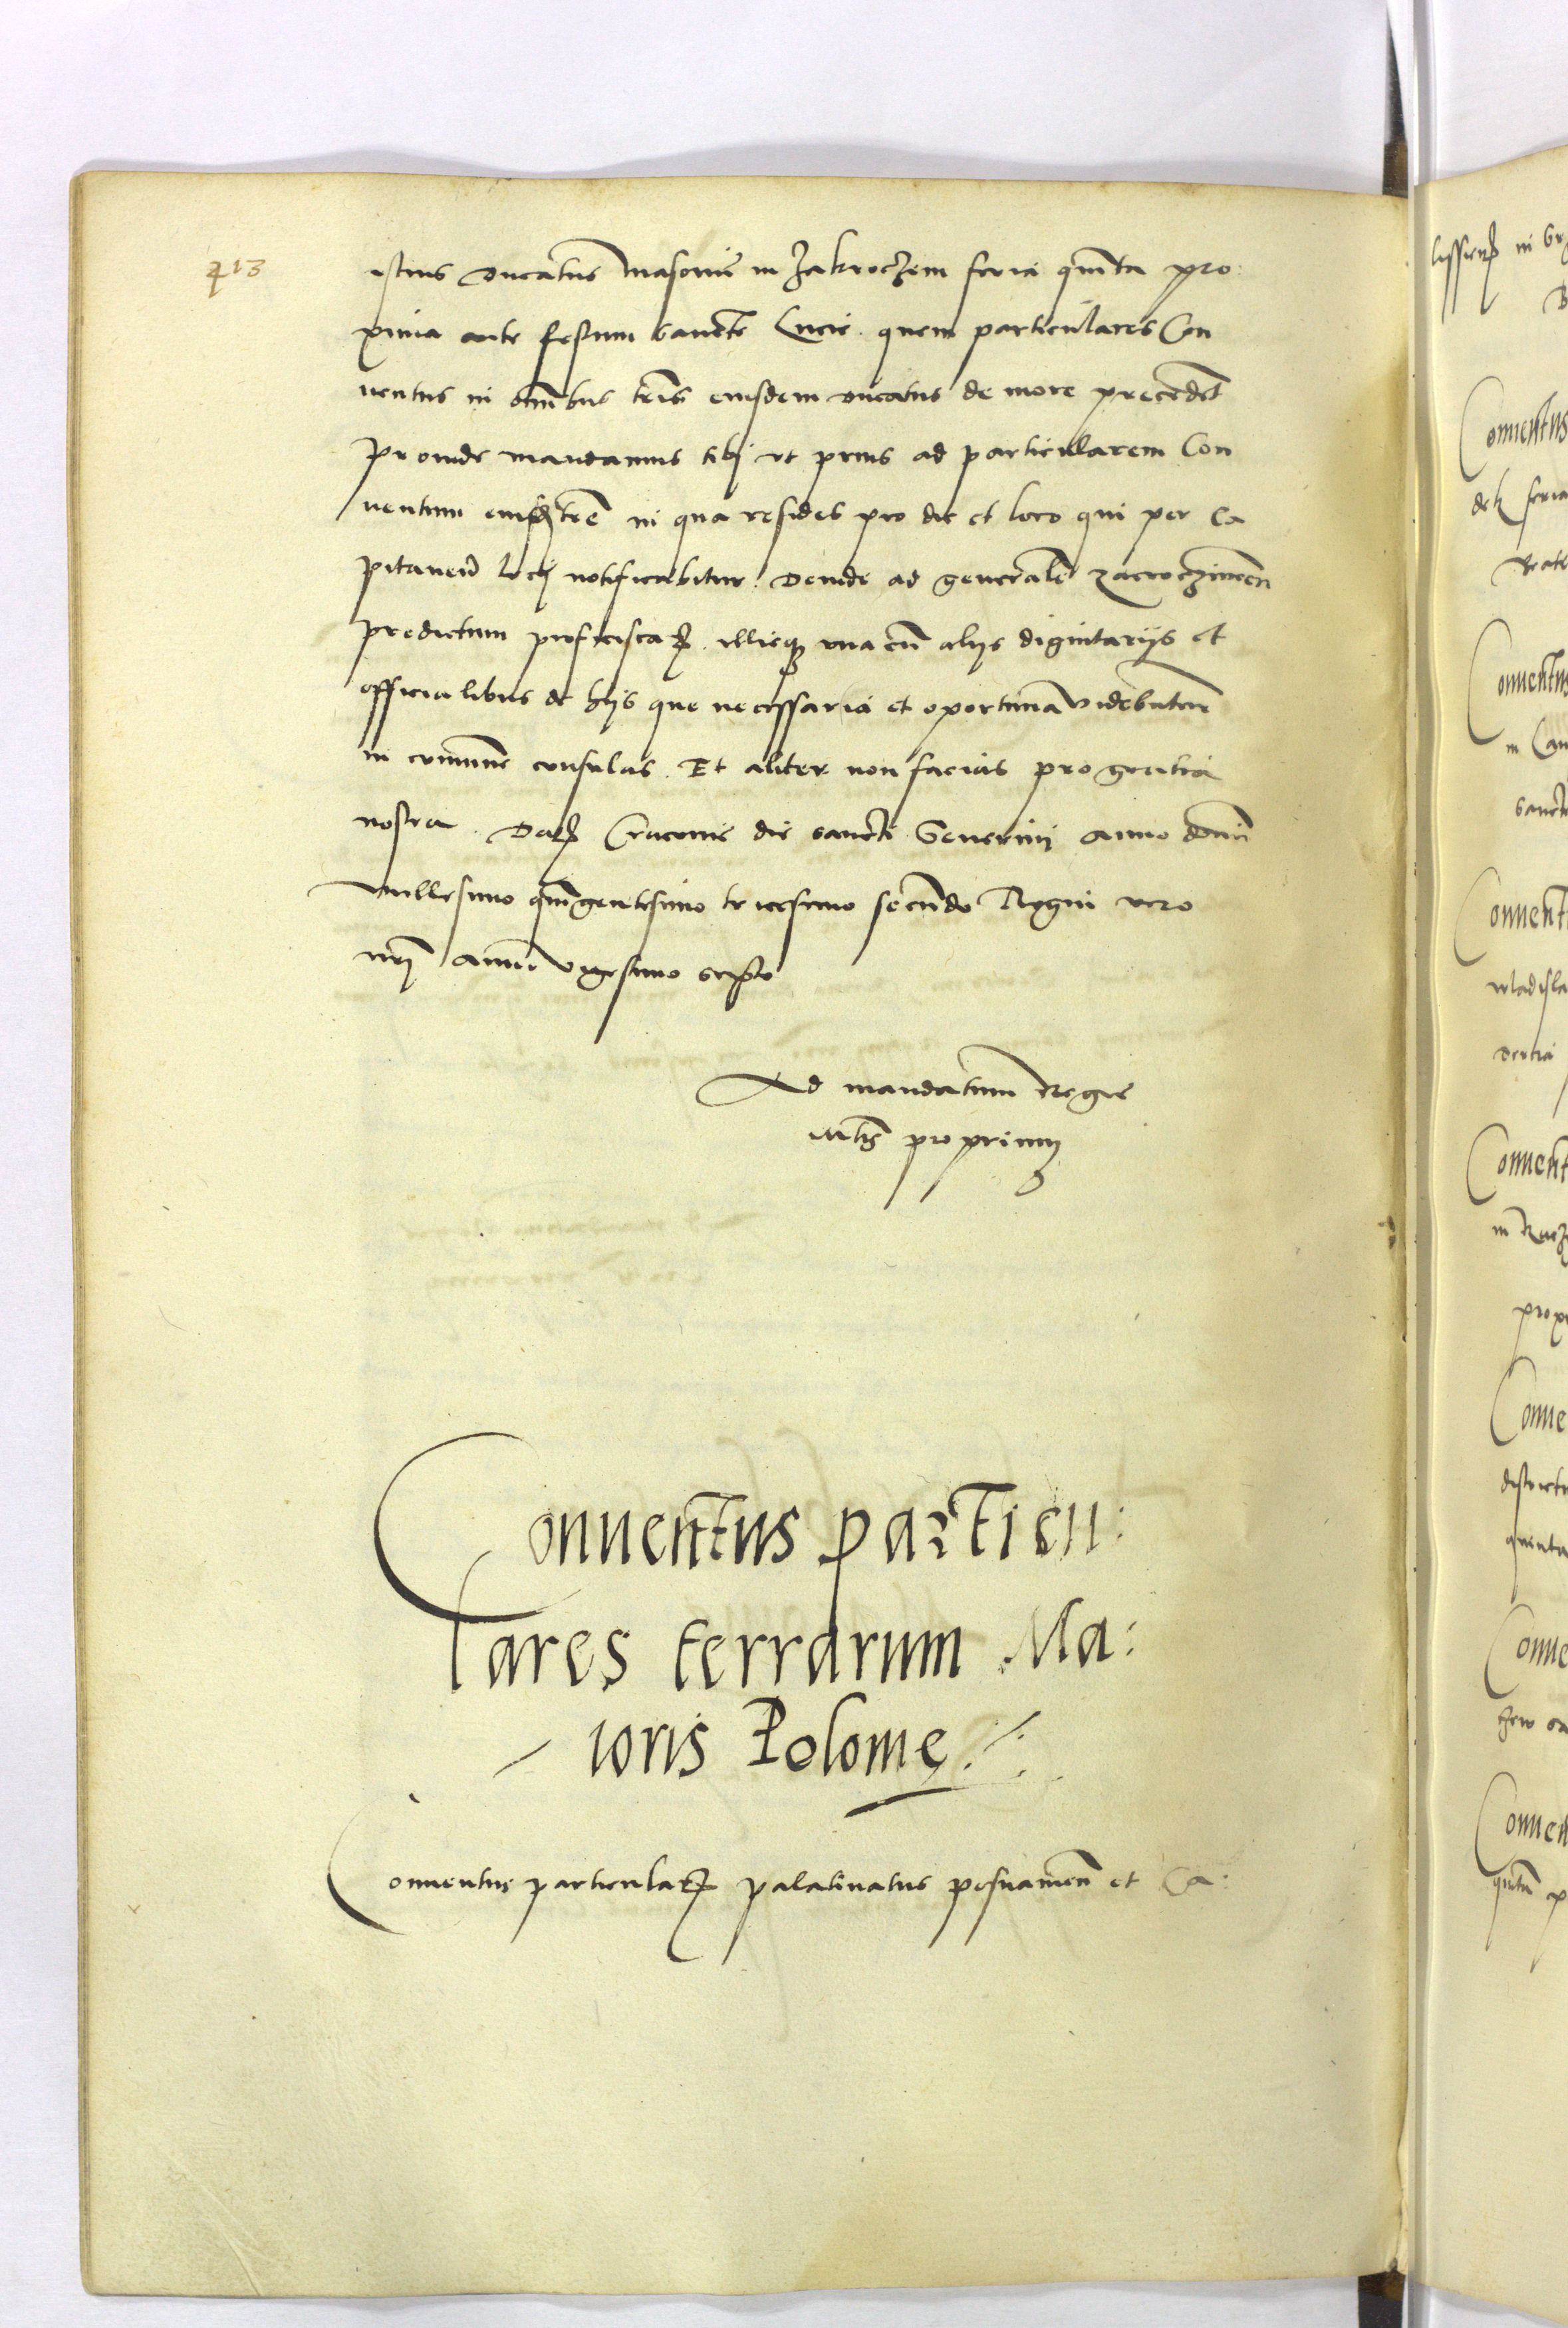 413
istius Ducatus Masovie in Zakroczim feria quinta pro:
xima ante festum sancte Lucie. quem particulares Con
ventus in omnibus terris eiusdem ducatus de more precedent
Proinde mandamus tibi ut prius ad particularem Con
ventum eiusdem terre in qua resides pro die et loco qui per Ca
pitaneum loci notificabitur. Deinde ad generalem Zacroczimen
predictum proficiscaris. illicque una cum aliis dignitariis et
officialibus de hiis que necessaria et oportuna videbuntur
in commune consulas. Et aliter non facias pro gratia
nostra. Datum Cracovie die sancti Severini Anno domini
Millesimo quingentesimo tricesimo secundo Regni vero
nostri Anno vigesimo sexto
Ad mandatum Regie
Mtis proprium
Conventus particu:
lares terrarum Ma:
ioris Polonie
Conventus particularis palatinatus posnanien et Ca:
lissien in
Conventus
dek feria
Conventus
in
sancte
Convent
wladisla
Convent
in
prox
Conve
districtu
quinta
Conve
Conven